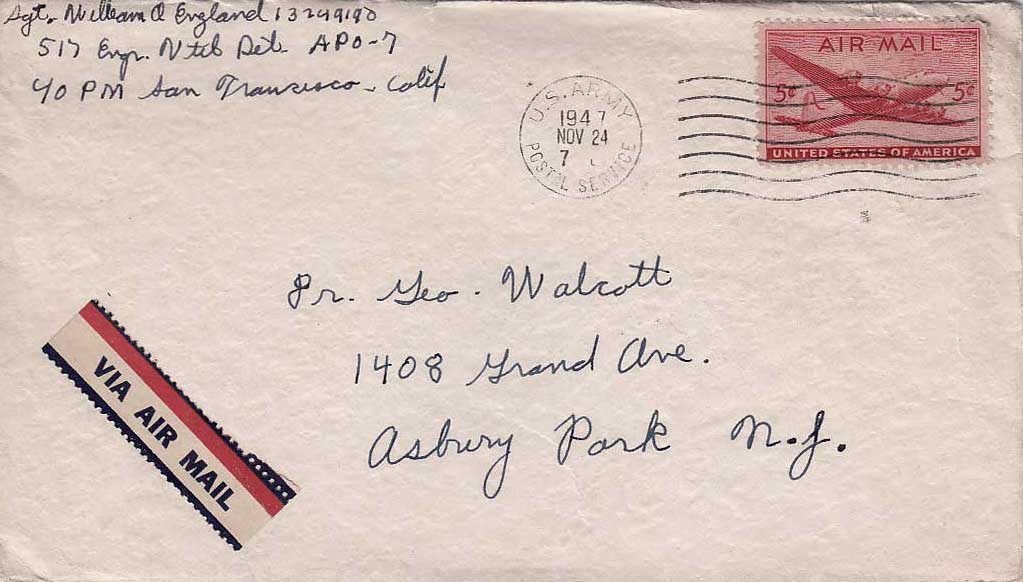 Sgt. William A England 13249190
517 Engr. Util Det. APO-7
40 PM San Francisco - Calif
U.S. ARMY
1947
NOV 24
7
POSTAL SERVICE
AIR MAIL
5¢ 5¢
UNITED STATES OF AMERICA
Geo. Walcott
1408 Grand Ave.
Asbury Park N.J.
VIA AIR MAIL